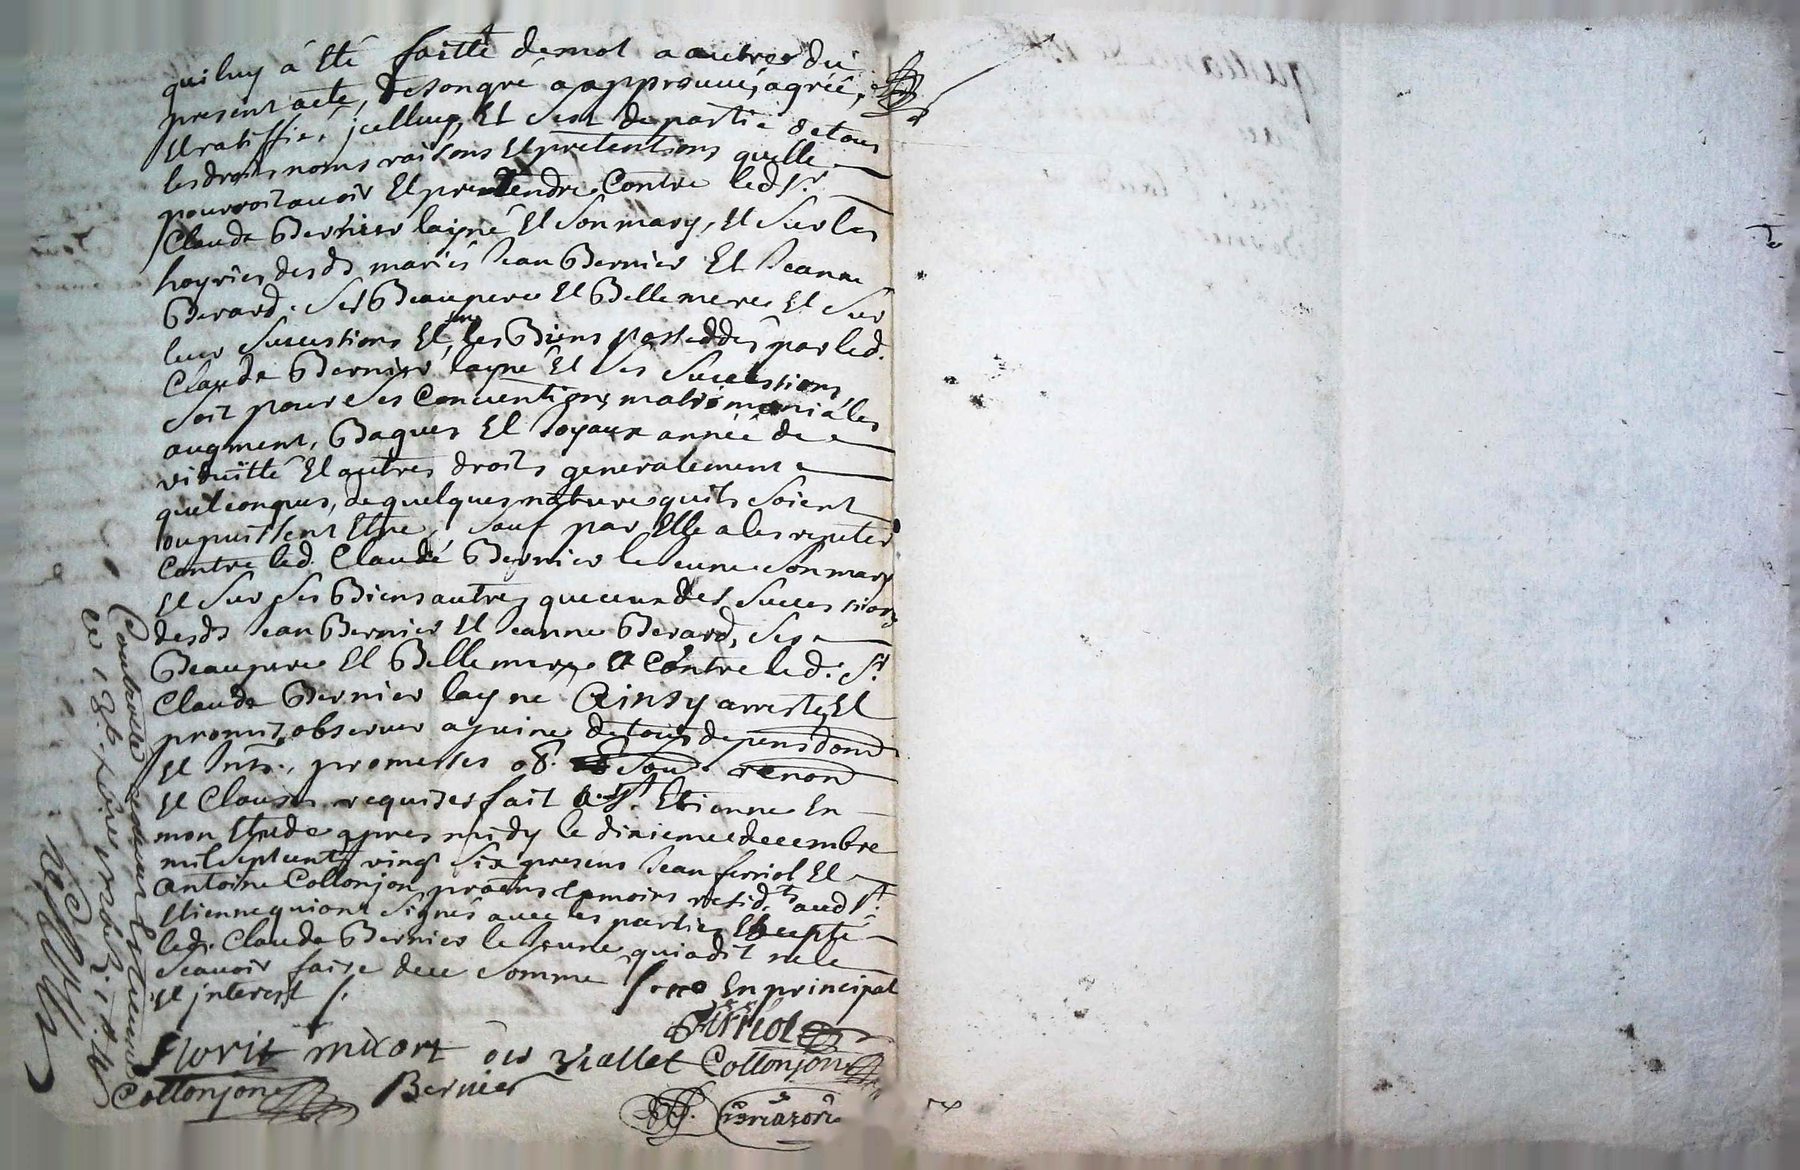 qui luy á Eté faitte de mot a autres du
present acte, de son gré a approuvé, agréé,
Et ratiffié, jcelluy, Et s'est departie de tous
les droits noms raisons Et pretentions quelle
pourroit avoir Et pretendre Contre led Sr
Claude Bernier layné Et son mary, Et sur les
hoyries desds mariés Jean Bernier Et Jeanne
Berard. ses Beaupere Et Belle mere Et sur
leur successions Et sur les Biens posseddés par led.
Claude Bernier layné Et ses successions
soit pour ses Conventions matrimoniáles
augment, Bagues Et Joyaux année de
viduitté Et autres droits generalement
quelconques, de quelques nature quils soient
ou puissent Etre, sauf par Elle a les repeter
Contre led. Claude Bernier le Jeune son mary
Et sur ses Biens autres que ceux des successions
desds Jean Bernier Et Jeanne Berard, ses
Beaupere Et Belle mere Et Contre led. Sr
Claude Bernier layne Ainsy arresté, Et
promis observer a peine de tous depens dom
Et Ints., promesses ob. soum. renon
Et Clauses requises fait a St. Etienne En
mon Etude apres midy le dixieme decembre
mil sept cents vingt six presens Jean ferriol Et
Antoine Collonjon, praciens temoins resid.ts aud St.
Etienne qui ont Signés avec les parties Excepté
led. Claude Bernier le Jeune qui a dit ne le
scavoir faire de ce somme En principal
Et jnterest /.
Ferriol
Florit micort viallet Collonjon
Collonjon Bernier
Controlle